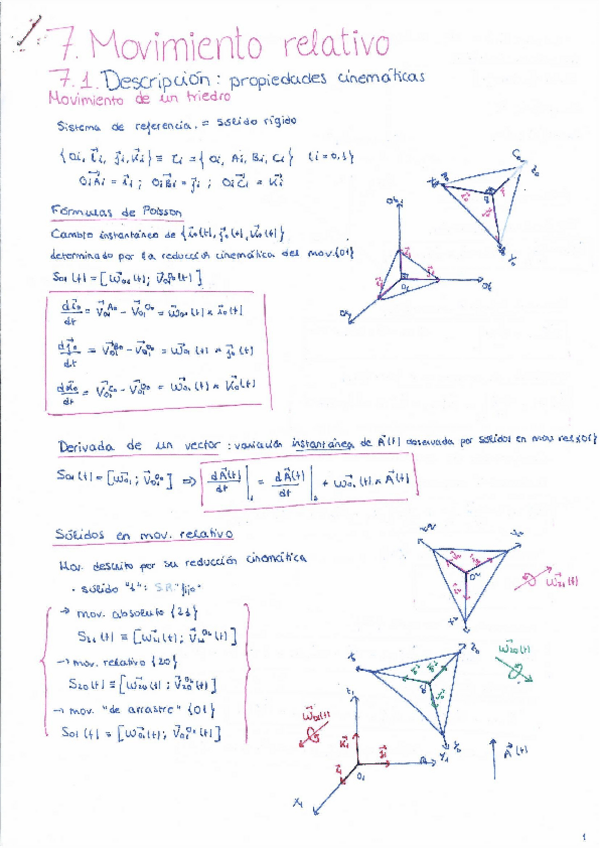 7. Movimiento relativo
7.1. Descripción: propiedades cinemáticas
Movimiento de un triedro
Sistema de referencia = sólido rígido
{Oi, i⃗i, j⃗i, k⃗i} ≡ τi = {Oi, Ai, Bi, Ci} (i=0,1)
OiAi = i⃗i ; OiBi = j⃗i ; OiCi = k⃗i
Fórmulas de Poisson
Cambio instantáneo de {i⃗0(t), j⃗0(t), k⃗0(t)}
determinado por la reducción cinemática del mov. {01}
S01(t) = [ω⃗01(t); v⃗01^O0(t)]
di⃗0/dt = v⃗01^A0 - v⃗01^O0 = ω⃗01(t) × i⃗0(t)
dj⃗0/dt = v⃗01^B0 - v⃗01^O0 = ω⃗01(t) × j⃗0(t)
dk⃗0/dt = v⃗01^C0 - v⃗01^O0 = ω⃗01(t) × k⃗0(t)
Derivada de un vector: variación instantánea de A⃗(t) observada por sólidos en mov. rel {01}
S01(t) = [ω⃗01; v⃗01^O0] ⇒ dA⃗(t)/dt |1 = dA⃗(t)/dt |0 + ω⃗01(t) × A⃗(t)
Sólidos en mov. relativo
Mov. descrito por su reducción cinemática
· sólido "1": S.R. "fijo"
→ mov. absoluto {21}
S21(t) ≡ [ω⃗21(t); v⃗21^O2(t)]
→ mov. relativo {20}
S20(t) ≡ [ω⃗20(t); v⃗20^O2(t)]
→ mov. "de arrastre" {01}
S01(t) = [ω⃗01(t); v⃗01^O0(t)]
ω⃗21(t)
ω⃗20(t)
ω⃗01(t)
A⃗(t)
1